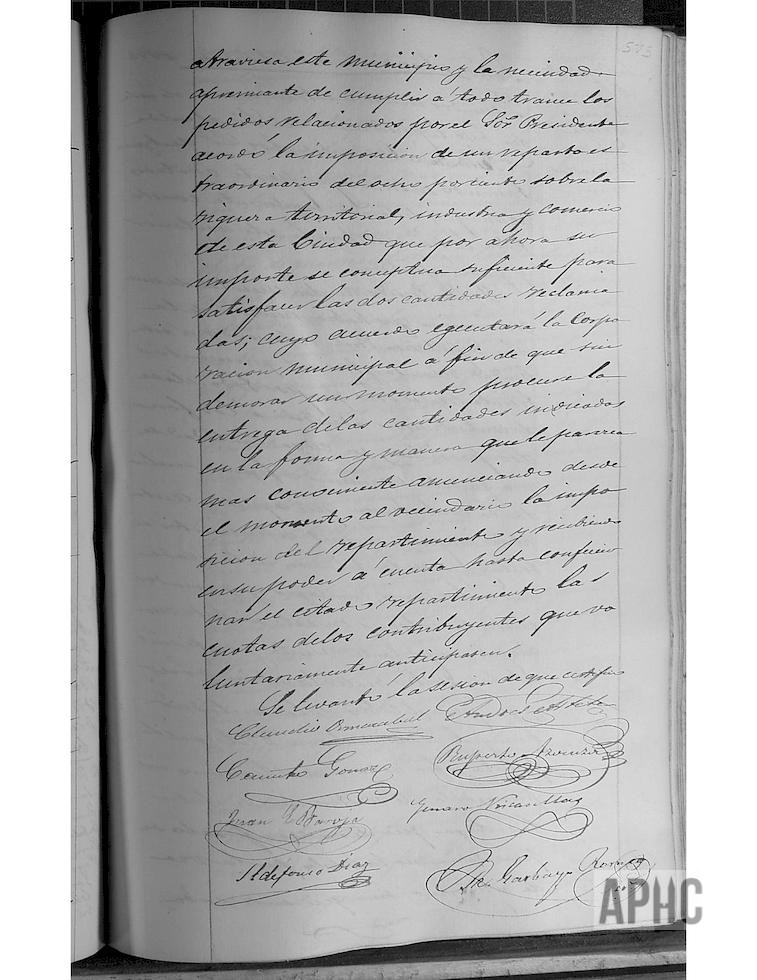 573
atraviesa este municipio y la necesidad
apremiante de cumplir a todo trance los
pedidos relacionados por el Sor. Presidente
acordó la imposicion de un reparto es
traordinario del ocho porciento sobre la
riqueza territorial, industria y comercio
de esta Ciudad que por ahora su
importe se conceptua suficiente para
satisfacer las dos cantidades reclama
das; cuyo acuerdo egecutará la Corpo
racion municipal a fin de que sin
demorar un momento procure la
entrega de las cantidades indicadas
en la forma y manera que le parezca
mas conveniente anunciando desde
el momento al vecindario la impo
sicion del repartimiento y recibiendo
en su poder á cuenta hasta confeccio
nar el citado repartimiento las
cuotas de los contribuyentes que vo
luntariamente anticipasen.
Se levantó la sesion de que certifico
Claudio
Ruperto Azcona
Canuto Gomez
Genaro
Juan Baroja
Ildefonso Diaz
Garbayo
APHC